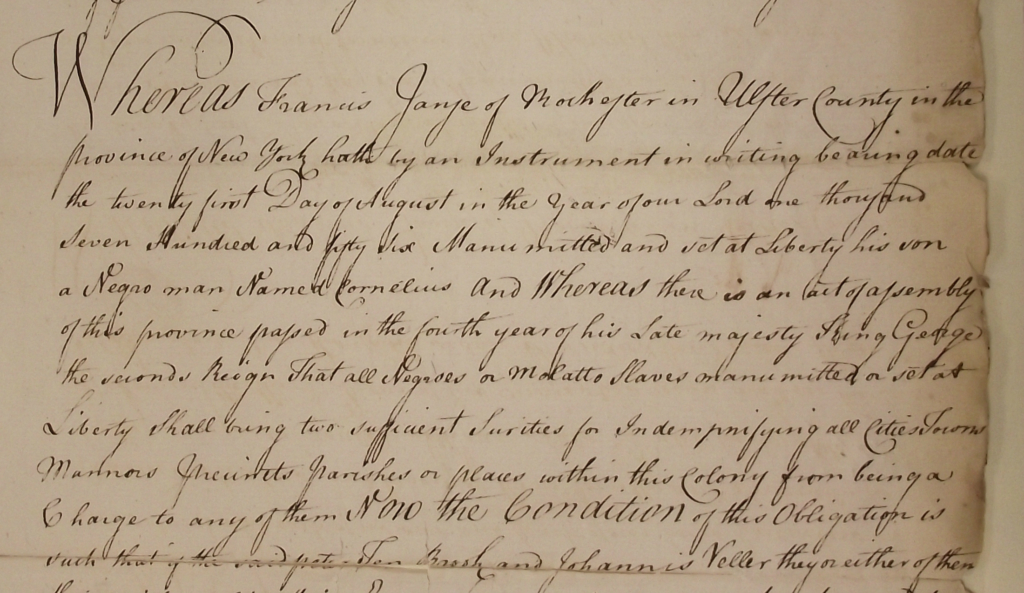 Whereas Francis Janse of Rochester in Ulster County in the
province of New York hath by an Instrument in writing bearing date
the twenty first Day of August in the Year of our Lord one thousand
Seven Hundred and fifty Six Manumitted and set at Liberty his son
a Negro man Named Cornelius And Whereas there is an act of assembly
of this province passed in the fourth year of his Late majesty King George
the seconds Reign That all Negroes or Molatto Slaves manumitted or set at
Liberty Shall bring two sufficient Surities for Indempnifying all Cities Towns
Mannors Precincts parishes or places within this Colony from being a
Charge to any of them Now the Condition of this Obligation is
such that if the said Ten Broek and Johannis Veller they or either of them